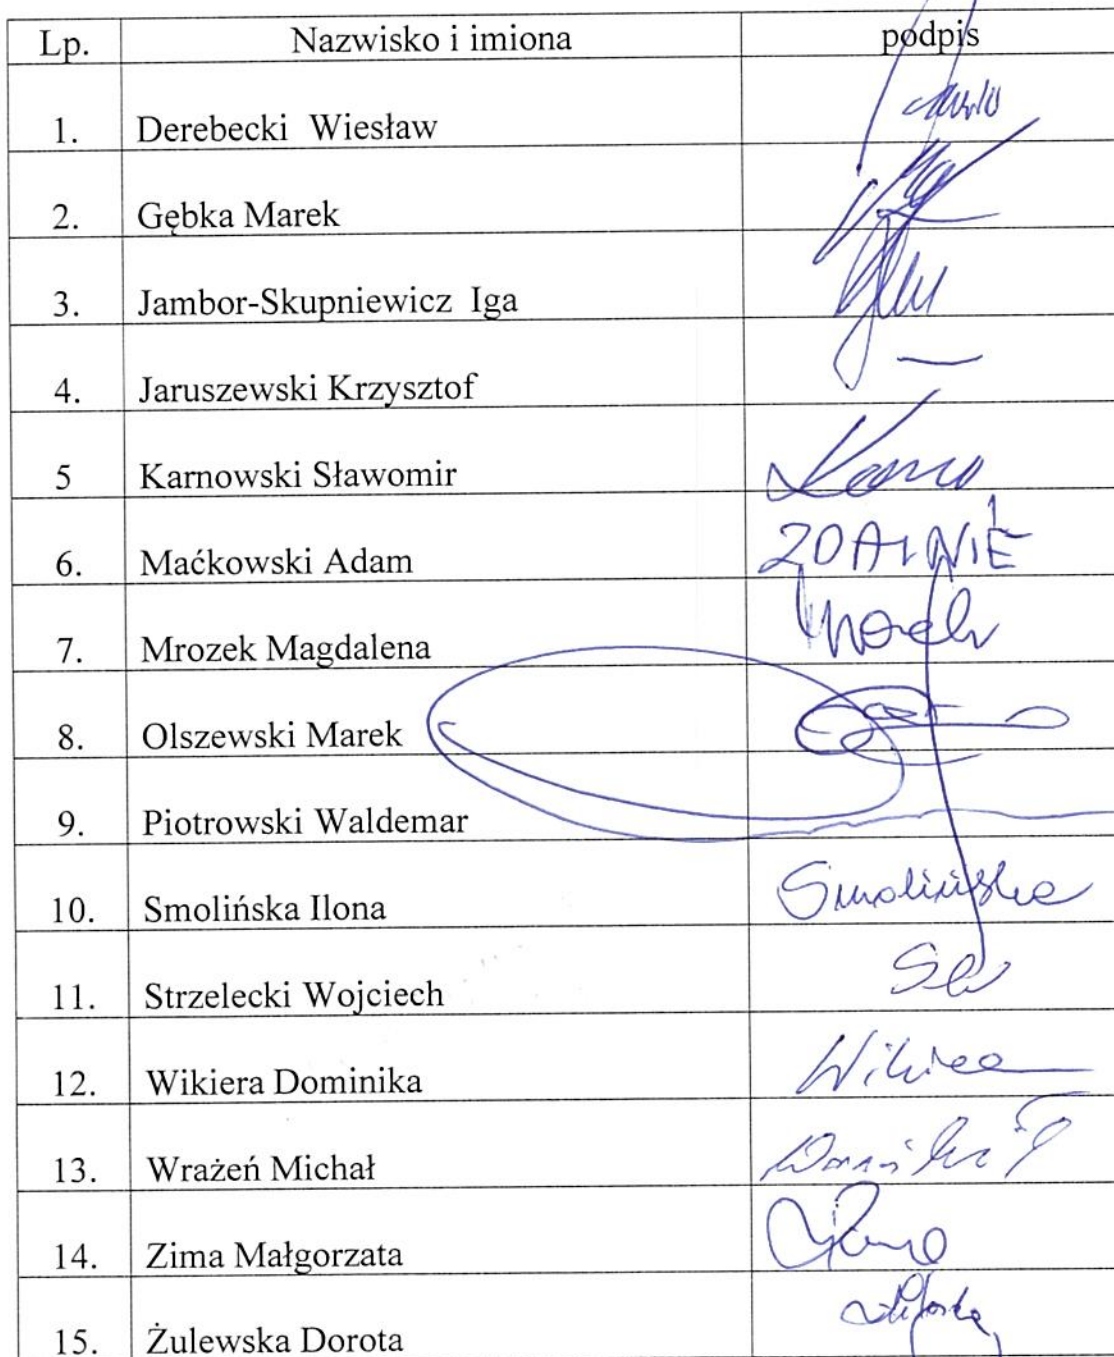 Lp. Nazwisko i imiona podpis
1. Derebecki Wiesław
2. Gębka Marek
3. Jambor-Skupniewicz Iga
4. Jaruszewski Krzysztof —
5 Karnowski Sławomir
6. Maćkowski Adam ZDALNIE
7. Mrozek Magdalena
8. Olszewski Marek
9. Piotrowski Waldemar
10. Smolińska Ilona Smolińska
11. Strzelecki Wojciech
12. Wikiera Dominika
13. Wrażeń Michał
14. Zima Małgorzata
15. Żulewska Dorota